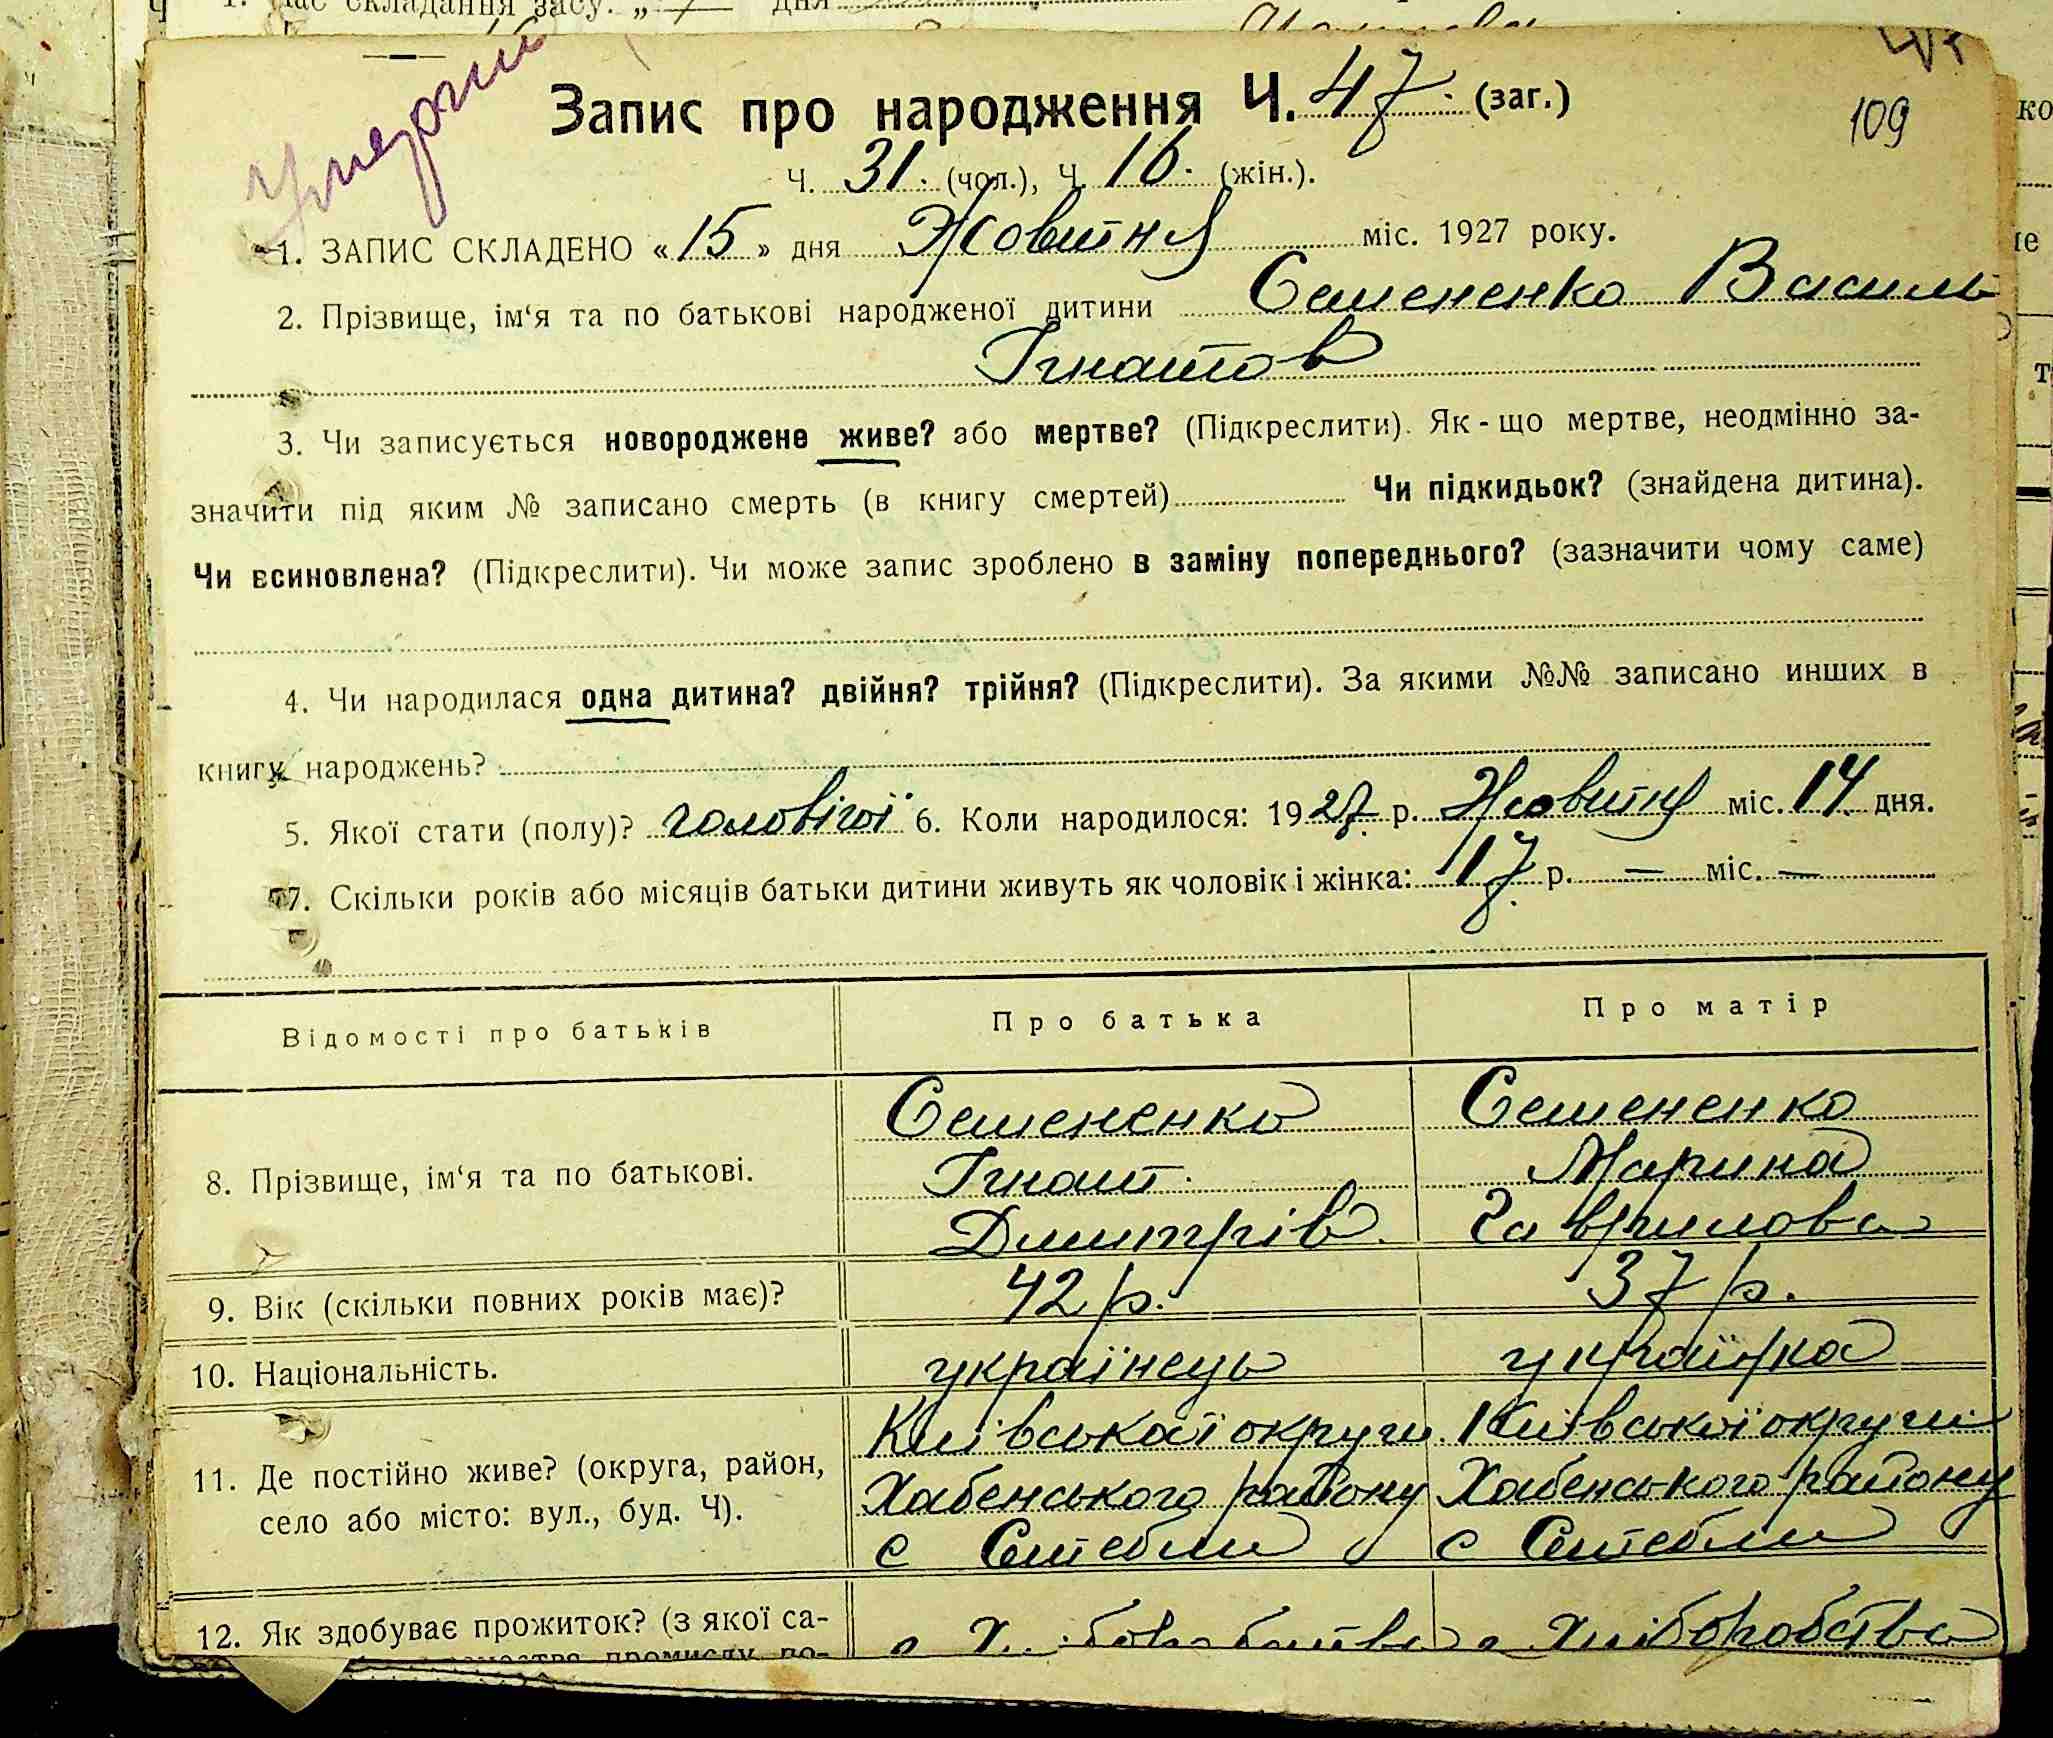 Умерший
Запис про народження Ч. 47. (заг.)
109
Ч. 31. (чол.), Ч. 16. (жін.).
1. ЗАПИС СКЛАДЕНО «15» дня Жовтня міс. 1927 року.
2. Прізвище, ім‘я та по батькові народженої дитини Семененко Василь
Ігнатов
3. Чи записується новороджене живе? або мертве? (Підкреслити). Як-що мертве, неодмінно за-
значити під яким № записано смерть (в книгу смертей) Чи підкидьок? (знайдена дитина).
Чи всиновлена? (Підкреслити). Чи може запис зроблено в заміну попереднього? (зазначити чому саме)
4. Чи народилася одна дитина? двійня? трійня? (Підкреслити). За якими №№ записано инших в
книгу народжень?
5. Якої стати (полу)? чоловічої 6. Коли народилося: 1927 р. Жовтня міс. 14 дня.
7. Скільки років або місяців батьки дитини живуть як чоловік і жінка: 17 р. — міс. —
Відомості про батьків Про батька Про матір
8. Прізвище, ім‘я та по батькові.
Семененко
Ігнат
Дмитрів
Семененко
Марина
Гаврилова
9. Вік (скільки повних років має)? 42 р. 37 р.
10. Національність. українець українка
11. Де постійно живе? (округа, район,
село або місто: вул., буд. Ч).
Київської округи
Хабенського району
с
Київської округи
Хабенського району
с
12. Як здобуває прожиток? (з якої са-
з Хліборобства з Хліборобства